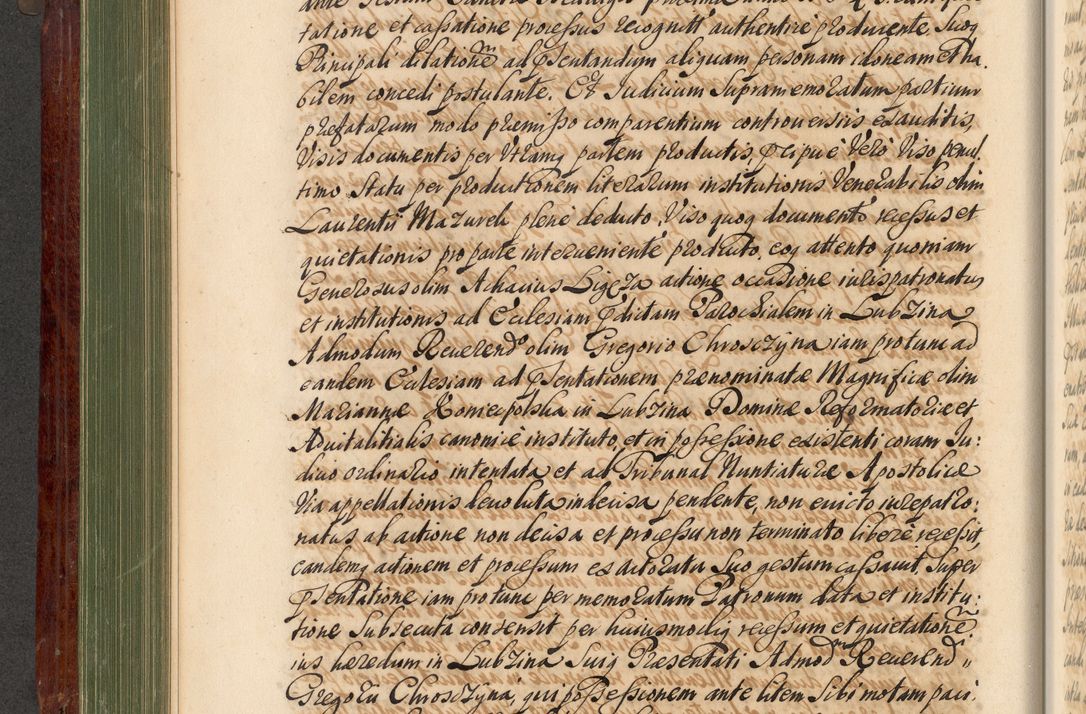 tatione et cassatione processus recognitt authentice producente, Suoq
Principali dilatione ad psentandum aliquam personam idoneam et ha.
bilem concedi postulante. Et Judicium Supramemoratum partium
prefatarum modo praemisso comparentium controversiis exauditis,
Visis documentis per Utramq partem productis, pcipue Vero Viso penul
timo Statu per productionem literarum institutionis Venerabilis olim
Laurentii Mazurek plene deducto. Viso quoq documento recessus et
quietationis pro parte interueniente producto, eoq attento quoniam
Generosus olim Achacius Ligęza actione occasione iurispatronatus
et institutionis ad Ecclesiam pdictam Parochialem in Lubzina
Admodum Reuerendo olim Gregorio Chrosczyna iam pro tunc ad
eandem Ecclesiam ad psentationem praenominatae Magnificae olim
Mariannae Koniecpolska in Lubzina Dominae Reformatoriae et
Aduitalitialis canonice instituto, et in possessione existenti coram Ju:
dicio ordinario intentata et ad Tribunal Nuntiaturae Apostolicae
Via appellationis deuoluta indecisa pendente, non euicto iurepatro:
natus ab actione non decisa et processu non terminato libere recessit,
eandemq actionem et processum ex actoratu Suo gestum cassauit, Super
psentatione iam pro tunc per memoratum Patronum data et institu:
tione Subsecuta consensit per huiusmodiq recessum et quietatione
ius haeredum in Lubzina Suiq Praesentati Admod Reuerendi
Gregorii Chrosczyna, qui possessionem ante litem Sibi motam paci: